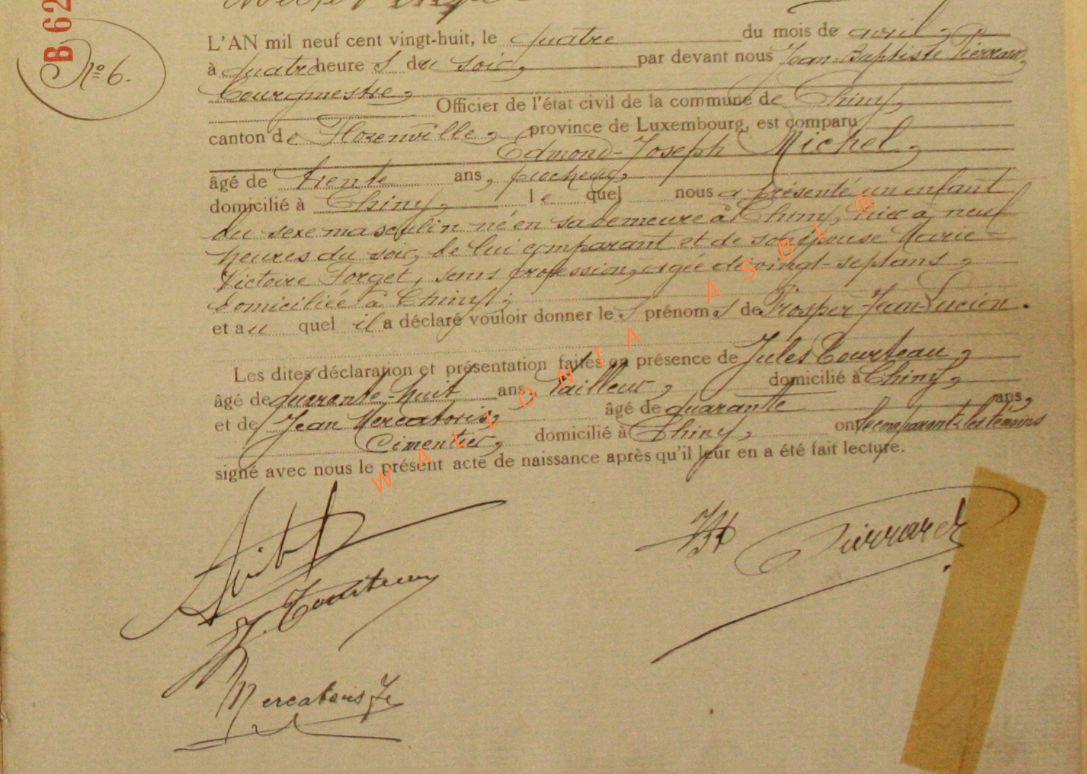 B 62
N° 6.
L'AN mil neuf cent vingt-huit, le quatre du mois de avril,
à quatre heure s du soir, par devant nous Jean-Baptiste Pierrard,
Bourgmestre, Officier de l'état civil de la commune de Chiny,
canton de Florenville, province de Luxembourg, est comparu
Edmond-Joseph Michel,
âgé de trente ans, piocheur,
domicilié à Chiny, le quel nous a présenté un enfant
du sexe masculin né en sa demeure à Chiny, hier à neuf
heures du soir, de lui comparant et de son épouse Marie-
Victoire Forget, sans profession, agée de vingt-sept ans,
domiciliée à Chiny;
et au quel il a déclaré vouloir donner le s prénom s de Prosper-Jean-Lucien.
Les dites déclaration et présentation faites en présence de Jules Tourteau,
âgé de quarante-huit ans, tailleur, domicilié à Chiny,
et de Jean Mercatoris, âgé de quarante ans,
Cimentier, domicilié à Chiny, ont le comparant & les témoins
signé avec nous le présent acte de naissance après qu'il leur en a été fait lecture.
Pierrard
Mercatoris J
WALLONIA ASBL ©